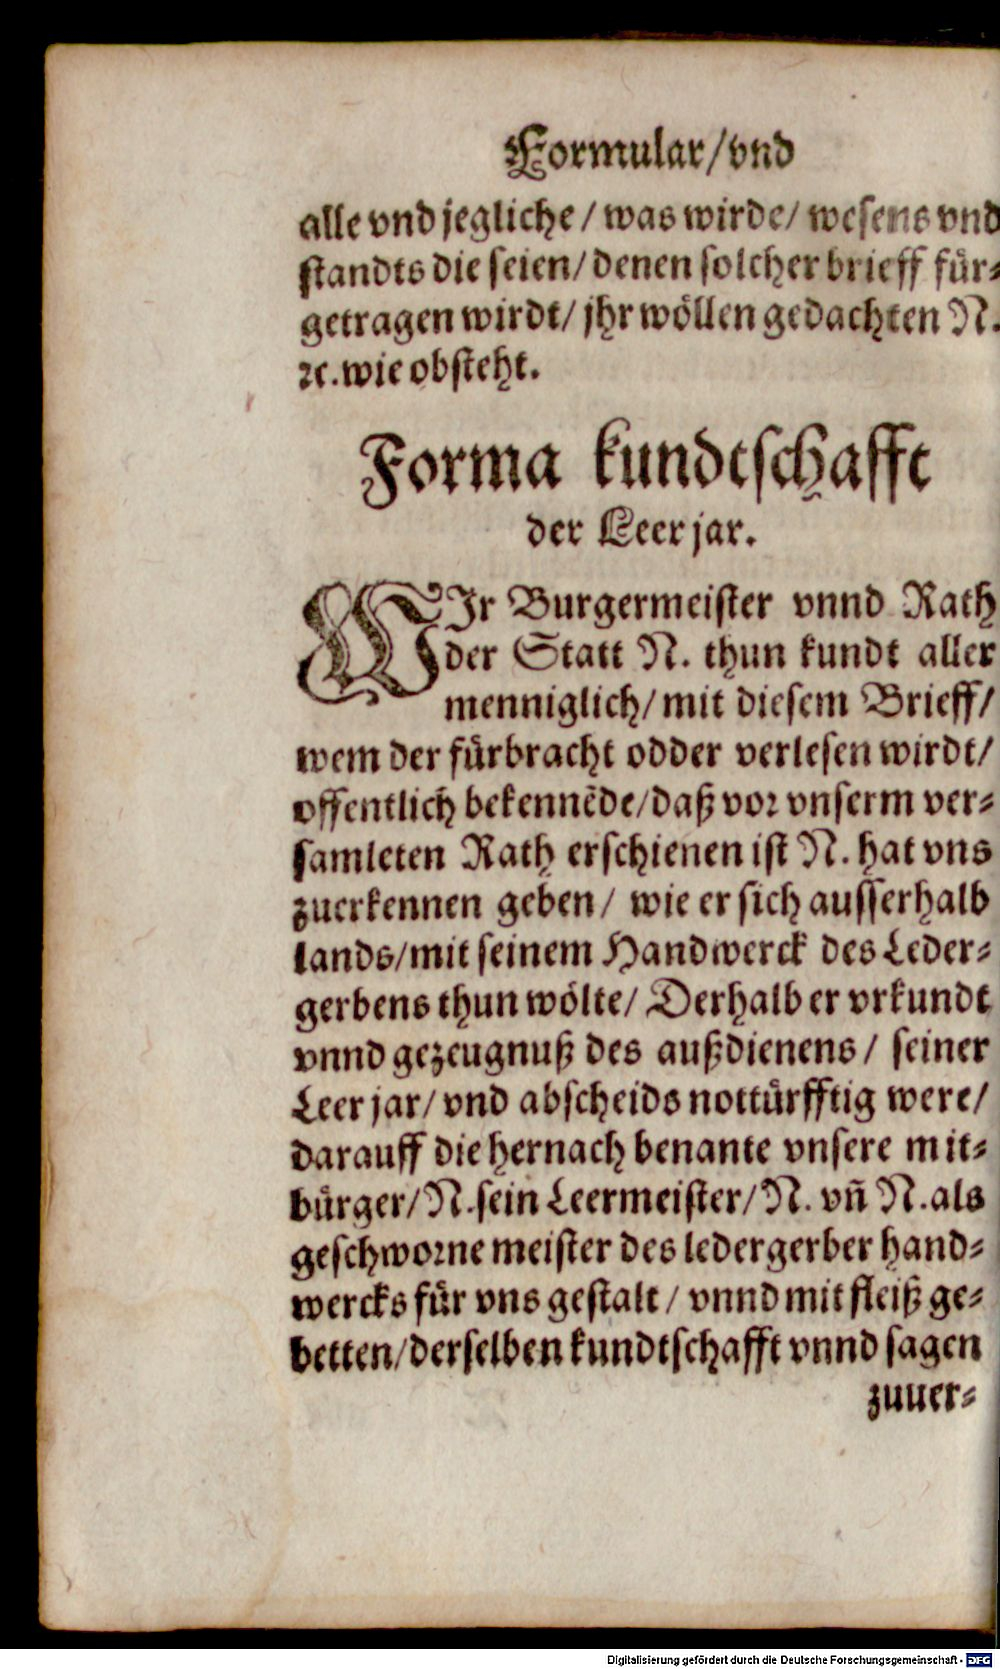 Formular/vnd
alle vnd jegliche / was wirde/ wesens vnd
standts die seien/ denen solcher brieff fuͤr⸗
getragen wirdt/ jhr woͤllen gedachten N.
ꝛc. wie obsteht.
Forma kundtschafft
der Leer jar.
WIr Burgermeister vnnd Rath
der Statt N. thun kundt aller
menniglich/ mit diesem Brieff/
wem der fuͤrbracht odder verlesen wirdt/
offentlich bekennẽde/daß vor vnserm ver⸗
samleten Rath erschienen ist N. hat vns
zuerkennen geben/ wie er sich ausserhalb
lands/mit seinem Handwerck des Leder⸗
gerbens thun woͤlte/ Derhalb er vrkundt
vnnd gezeugnuß des außdienens/ seiner
Leer jar/ vnd abscheids nottuͤrfftig were/
darauff die hernach benante vnsere mit⸗
buͤrger/ N. sein Leermeister/ N. vñ N. als
geschworne meister des ledergerber hand⸗
wercks fuͤr vns gestalt / vnnd mit fleiß ge⸗
betten/derselben kundtschafft vnnd sagen
zuuer⸗
Digitalisierung gefördert durch die Deutsche Forschungsgemeinschaft - DFG